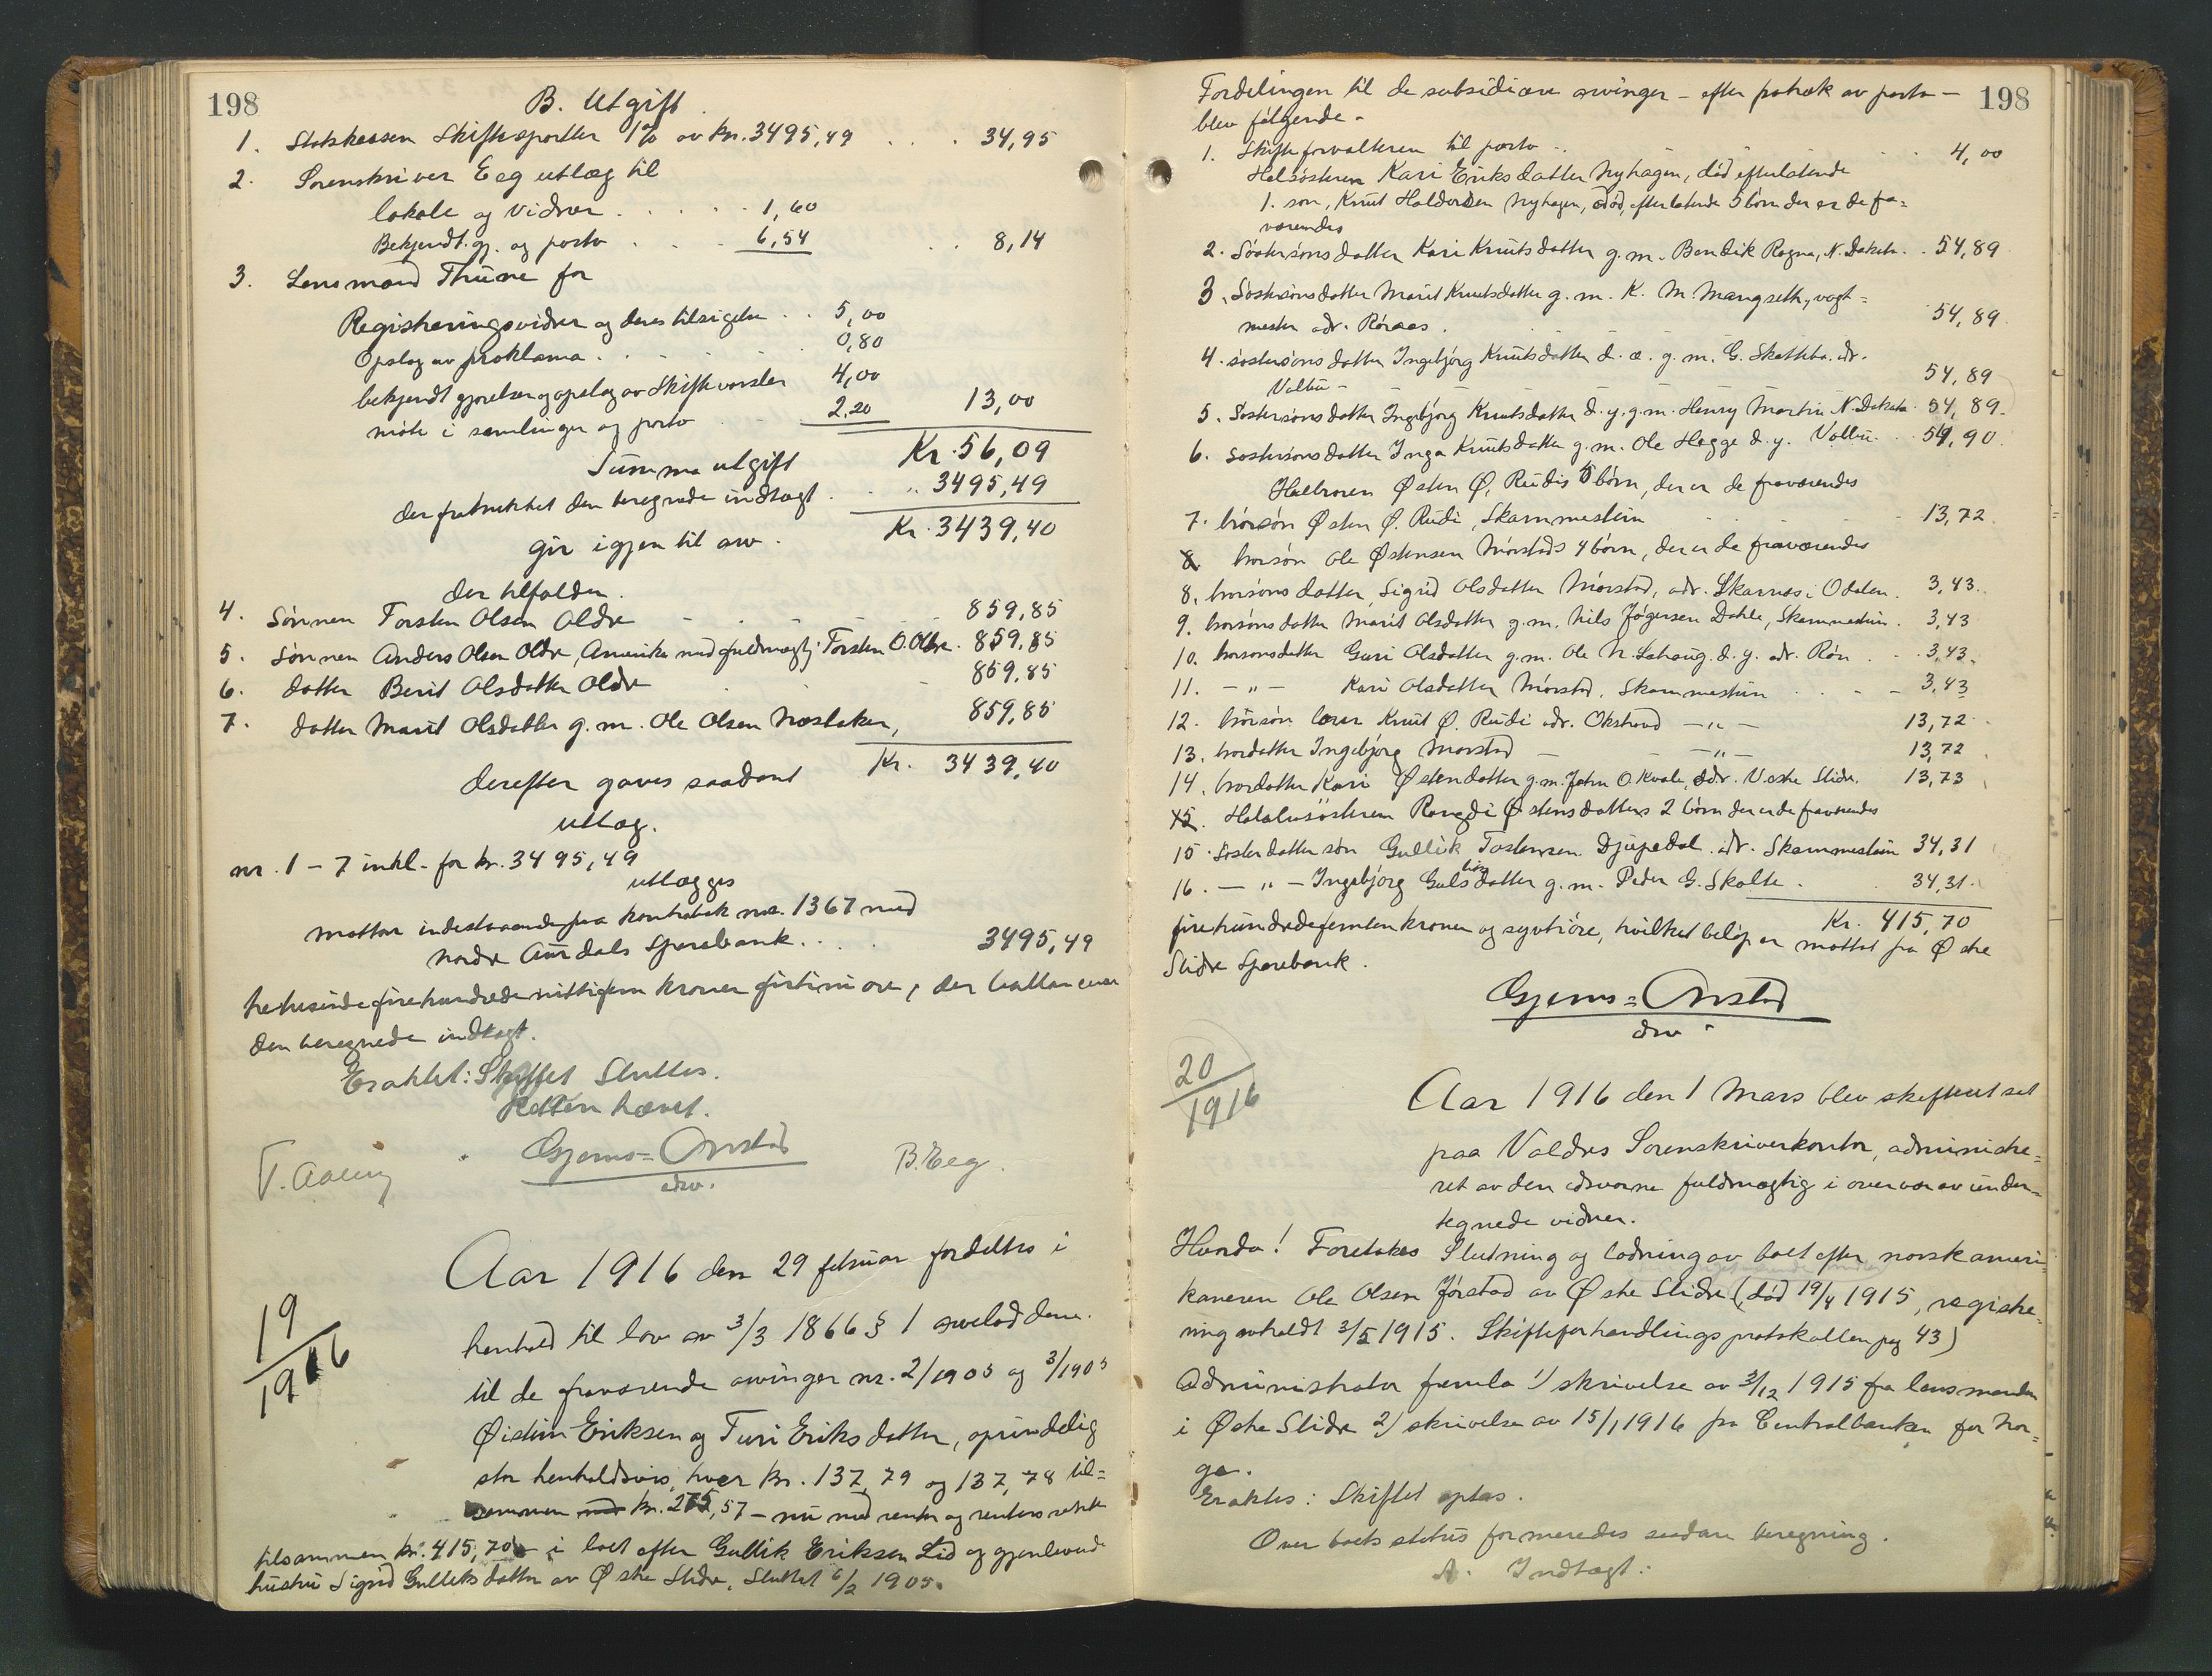 198
B. Utgift
1. Statskassen Skiftesportler 1% av kr. 3495,49 . . . 34,95
2. Sorenskriver Eeg utlæg til
lokale og vidner . . . . . 1,60
Bekjendt.gj. og porto . . . 6,54 . . 8,14
3. Lensmand Thune for
Registreringsvidner og deres tilsigelse . . 5,00
Opslag av proklama . . . . 0,80
bekjendtgjørelse og opslag av Skiftevarsler 4,00
møte i samlinger og porto . 2,20 13,00
Summa utgift Kr. 56,09
der fratrukket den beregnede indtægt . . " 3495,49
gir igjen til arv . Kr. 3439,40
der tilfalder.
4. Sønnen Torsten Olsen Oldre - - - 859,85
5. Sønnen Anders Olsen Oldre, Amerika med fuldmægtig Torsten O. Oldre . 859,85
6. datter Berit Olsdatter Oldre 859,85
7. datter Marit Olsdatter g. m. Ole Olsen Næstaker, 859,85
Kr. 3439,40
Derefter gaves saadant
utlæg.
nr. 1 - 7 inkl. for kr. 3495,49
utlægges
mottar indestaaende paa kontrabok nr. 1367 med
Nordre Aurdals Sparebank . . . 3495,49
tretusindefirehundredenittifem kroner firtini øre, der ballancerer
den beregnede indtægt.
Eragtet: Skiftet Sluttes.
Retten hævet.
Gjems=Onstad B. Eeg.
edsv.
19
1916
Aar 1916 den 29 februar fordeltes i
henhold til lov av 3/3 1866 § 1 arvelodderne
til de fraværende arvinger nr. 2/1905 og 3/1905
Øistein Eriksen og Turi Eriksdatter, oprindelig
stor henholdsvis hver kr. 137,79 og 137,78 til=
sammen kr. 275,57 - nu med renter og renters rente
tilsammen kr. 415,70 - i boet efter Gullik Eriksen Lid og gjenlevende
hustru Sigrid Gulliksdatter av Østre Slidre, sluttet 6/2 1905.
198
Fordelingen til de subsidiære arvinger - efter fratræk av porto -
blev følgende -
1. Skifteforvalteren til porto . . . . 4,00
Helsøsteren Kari Eriksdatter Nyhagen, død efterlatende
1. søn, Knut Haldorsen Nyhagen, død, efterlatende 5 børn der er de fra=
værendes
2. Søstersønsdatter Kari Knutsdatter g. m. Bendik Rogne, N. Dakota . . 54,89
3. Søstersønsdatter Marit Knutsdatter g. m. K. M. Mangseth, vogt=
mester adr. Røraas . 54,89
4. søstersønsdatter Ingebjørg Knutsdatter d. æ. g. m. G. Skattebo. adr.
Volbu - 54,89
5. Søstersønsdatter Ingebjørg Knutsdatter d. y. g. m. Henry Martin N. Dakota . 54,89
6. søstersønsdatter Inga Knutsdatter g. m. Ole Hegge d. y. Volbu . . 54,90
Halbroren Østen Ø. Rudis 5 børn, der er de fraværendes
7. brorsøn Østen Ø. Rudi, Skammestein 13,72
8 brorsøn Ole Østensen Mørstads 4 børn, der er de fraværendes
8. brorsønsdatter, Sigrid Olsdatter Mørstad, adr. Skarnes i Odalen . 3,43
9. brorsønsdatter Marit Olsdatter g. m. Nils Jøgersen Dahle, Skammestein . 3,43
10. brorsønsdatter Guri Olsdatter g. m. Ole N. Lohaug d. y. adr. Røn . . 3,43
11. - " - Kari Olsdatter Mørstad, Skammestein . . . 3,43
12. brorsøn lærer Knut Ø. Rudi adr. Okshovd - " - 13,72
13. brordatter Ingebjørg Mørstad - - " - 13,72
14. brordatter Kari Østensdatter g. m. John O. Kvale, adr. Vestre Slidre. 13,73
15. Halvsøsteren Rangdi Østensdatters 2 børn der er de fraværendes
15. Søsterdattersøn Gullik Tostensen Djupedal adr. Skammestein 34,31
16. - " - Ingebjørg Gulliksdatter g. m. Peder G. Skolte . 34,31
Kr. 415,70
firehundredefemten kroner og sytti øre, hvilket beløp er mottat fra Østre
Slidre Sparebank.
Gjems=Onstad
edsv.
20
1916
Aar 1916 den 1 Mars blev skifteret sat
paa Valdres Sorenskriverkontor, administre=
ret av den edsvorne fuldmægtig i overvær av under=
tegnede vidner.
Hvorda! Foretokes Slutning og lodning av boet efter norskameri=
kaneren Ole Olsen Jørstad av Østre Slidre (død 19/4 1915, registre=
ring avholdt 3/5 1915. Skifteforhandlingsprotokollen pag 43)
Administrator fremla 1) skrivelse av 3/12 1915 fra lensmanden
i Østre Slidre 2) skrivelse av 15/1 1916 fra Centralbanken for Nor=
ge.
Eragtes: Skiftet optas.
Over boets status formeredes saadan beregning.
A. Indtægt: